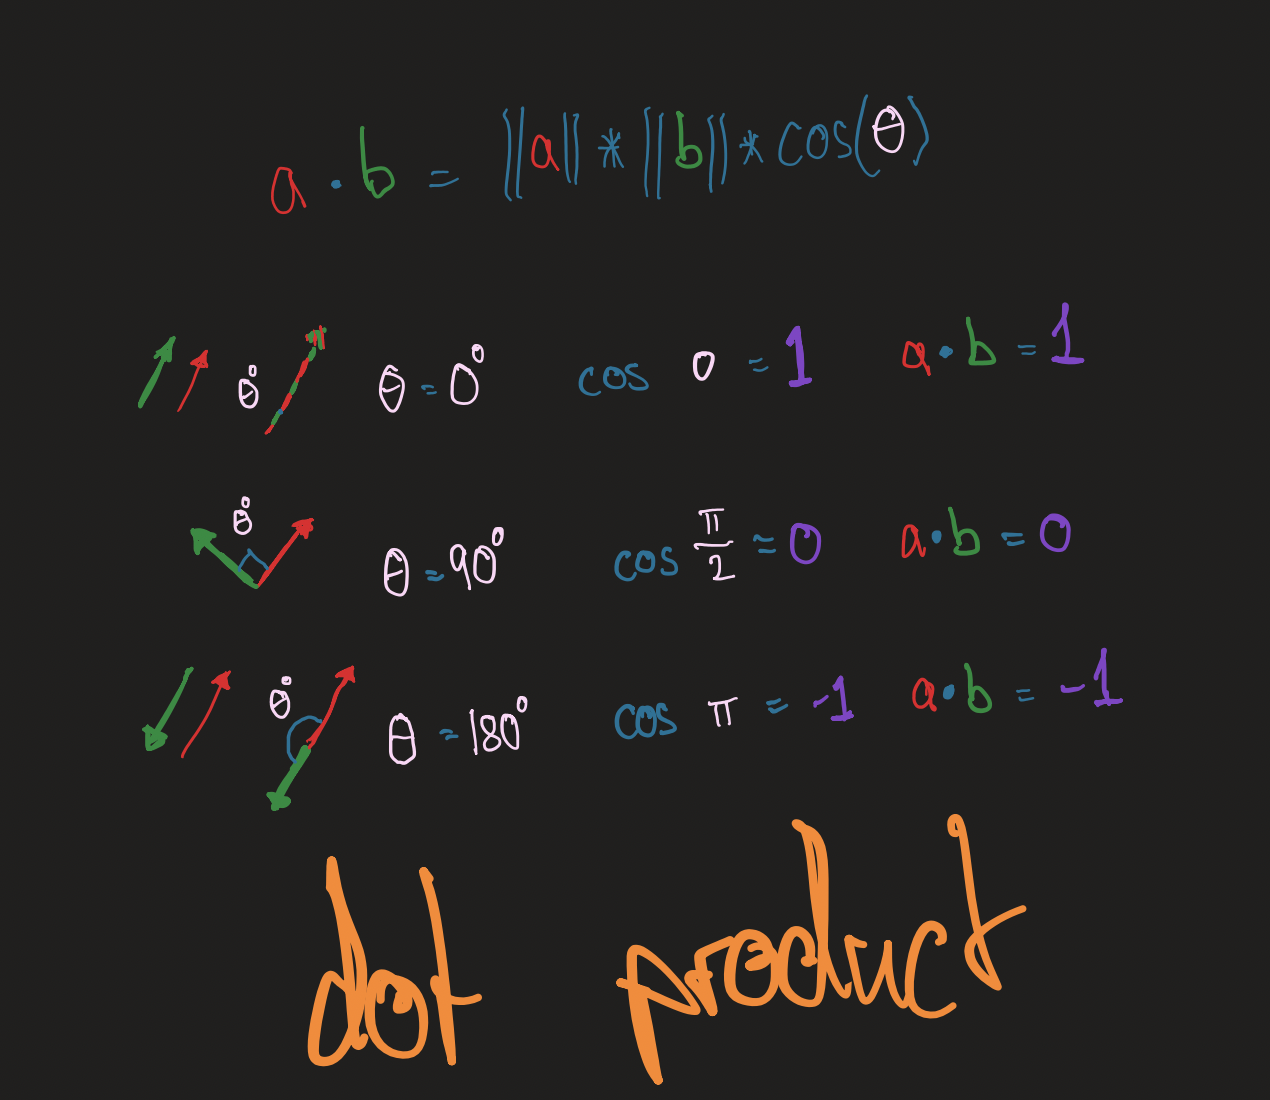 a · b = ||a|| * ||b|| * cos(θ)
θ° θ = 0° cos 0 = 1 a · b = 1
θ° θ = 90° cos π/2 = 0 a · b = 0
θ° θ = 180° cos π = -1 a · b = -1
dot product